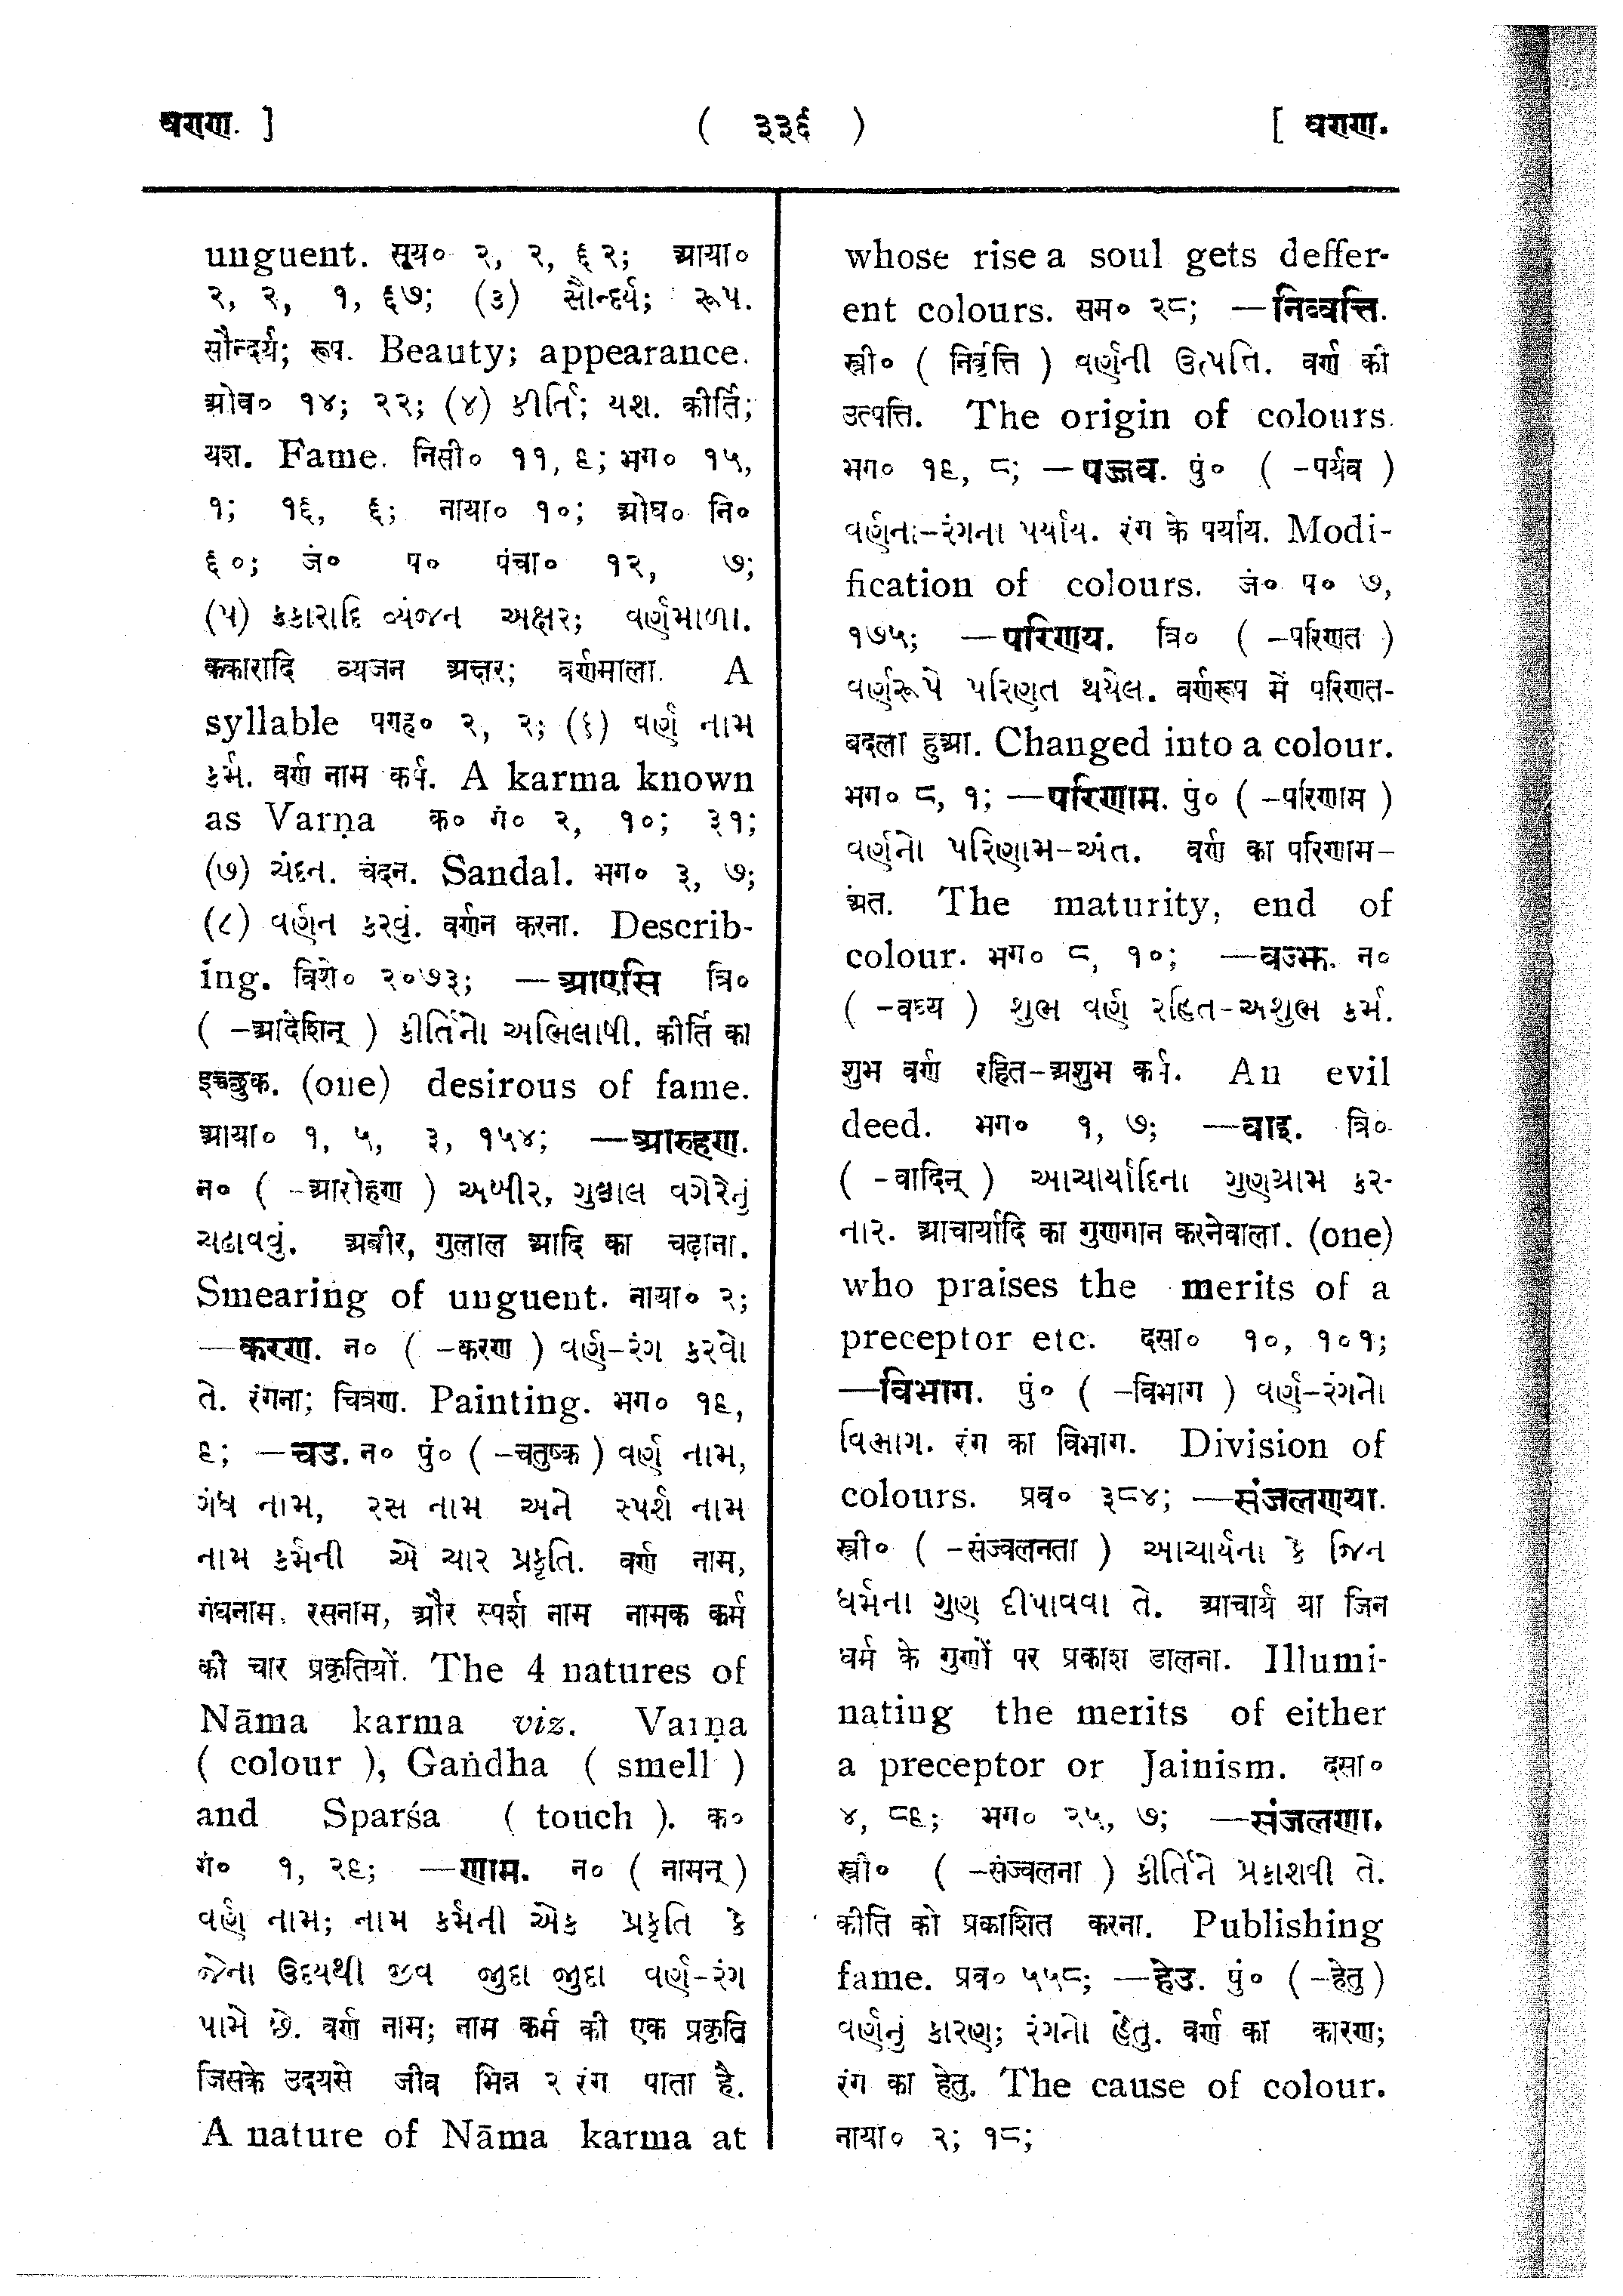 वण्ण. ] ( ३३६ ) [ वण्ण.
unguent. सूय० २, २, ६२; आया०
२, २, १, ६७; (३) સૌન્દર્ય; રૂપ.
सौन्दर्य; रूप. Beauty; appearance.
ओव० १४; २२; (४) કીર્તિ; યશ. कीर्ति;
यश. Fame. निसी० ११, ९; भग० १५,
१; १६, ६; नाया० १०; ओघ० नि०
६०; जं० प० पंचा० १२, ७;
(५) કકારાદિ વ્યંજન અક્ષર; વર્ણમાળા.
ककारादि व्यजन अक्षर; वर्णमाला. A
syllable पण्ह० २, २; (६) વર્ણ નામ
કર્મ. वर्ण नाम कर्म. A karma known
as Varṇa क० गं० २, १०; ३१;
(७) ચંદન. चंदन. Sandal. भग० ३, ७;
(८) વર્ણન કરવું. वर्णन करना. Describ-
ing. विशे० २०७३; —आएसि त्रि०
( -आदेशिन् ) કીર્તિનો અભિલાષી. कीर्ति का
इच्छुक. (one) desirous of fame.
आया० १, ५, ३, १५४; —आरुहण.
न० ( -आरोहण ) અબીર, ગુલાલ વગેરેનું
ચઢાવવું. अबीर, गुलाल आदि का चढ़ाना.
Smearing of unguent. नाया० २;
—करण. न० ( -करण ) વર્ણ-રંગ કરવો
તે. रंगना; चित्रण. Painting. भग० १९,
९; —चउ. न० पुं० ( -चतुष्क ) વર્ણ નામ,
ગંધ નામ, રસ નામ અને સ્પર્શ નામ
નામ કર્મની એ ચાર પ્રકૃતિ. वर्ण नाम,
गंधनाम, रसनाम, और स्पर्श नाम नामक कर्म
की चार प्रकृतियों. The 4 natures of
Nāma karma viz. Varṇa
( colour ), Gaṅdha ( smell )
and Sparśa ( touch ). क०
गं० १, २९; —णाम. न० ( नामन् )
વર્ણ નામ; નામ કર્મની એક પ્રકૃતિ કે
જેના ઉદયથી જીવ જુદા જુદા વર્ણ-રંગ
પામે છે. वर्ण नाम; नाम कर्म की एक प्रकृति
जिसके उदयसे जीव भिन्न २ रंग पाता है.
A nature of Nāma karma at
whose rise a soul gets deffer-
ent colours. सम० २८; —निव्वत्ति.
स्त्री० ( निर्वृत्ति ) વર્ણની ઉત્પતિ. वर्ण की
उत्पत्ति. The origin of colours.
भग० १९, ८; —पज्जव. पुं० ( -पर्यव )
વર્ણના-રંગના પર્યાય. रंग के पर्याय. Modi-
fication of colours. जं० प० ७,
१७५; —परिणय. त्रि० ( -परिणत )
વર્ણરૂપે પરિણત થયેલ. वर्णरूप में परिणत-
बदला हुआ. Changed into a colour.
भग० ८, १; —परिणाम. पुं० ( -परिणाम )
વર્ણનો પરિણામ-અંત. वर्ण का परिणाम-
अंत. The maturity, end of
colour. भग० ८, १०; —वज्झ. न०
( -वध्य ) શુભ વર્ણ રહિત-અશુભ કર્મ.
शुभ वर्ण रहित-अशुभ कर्म. An evil
deed. भग० १, ७; —वाइ. त्रि०
( -वादिन् ) આચાર્યાદિના ગુણગ્રામ કર-
નાર. आचार्यादि का गुणगान करनेवाला. (one)
who praises the merits of a
preceptor etc. दसा० १०, १०१;
—विभाग. पुं० ( -विभाग ) વર્ણ-રંગનો
વિભાગ. रंग का विभाग. Division of
colours. प्रव० ३८४; —संजलणया.
स्त्री० ( -संज्वलनता ) આચાર્યના કે જિન
ધર્મના ગુણ દીપાવવા તે. आचार्य या जिन
धर्म के गुणों पर प्रकाश डालना. Illumi-
nating the merits of either
a preceptor or Jainism. दसा०
४, ८९; भग० २५, ७; —संजलणा.
स्त्री० ( -संज्वलना ) કીર્તિને પ્રકાશવી તે.
कीर्ति को प्रकाशित करना. Publishing
fame. प्रव० ५५८; —हेउ. पुं० ( -हेतु )
વર્ણનું કારણ; રંગનો હેતુ. वर्ण का कारण;
रंग का हेतु. The cause of colour.
नाया० २; १८;